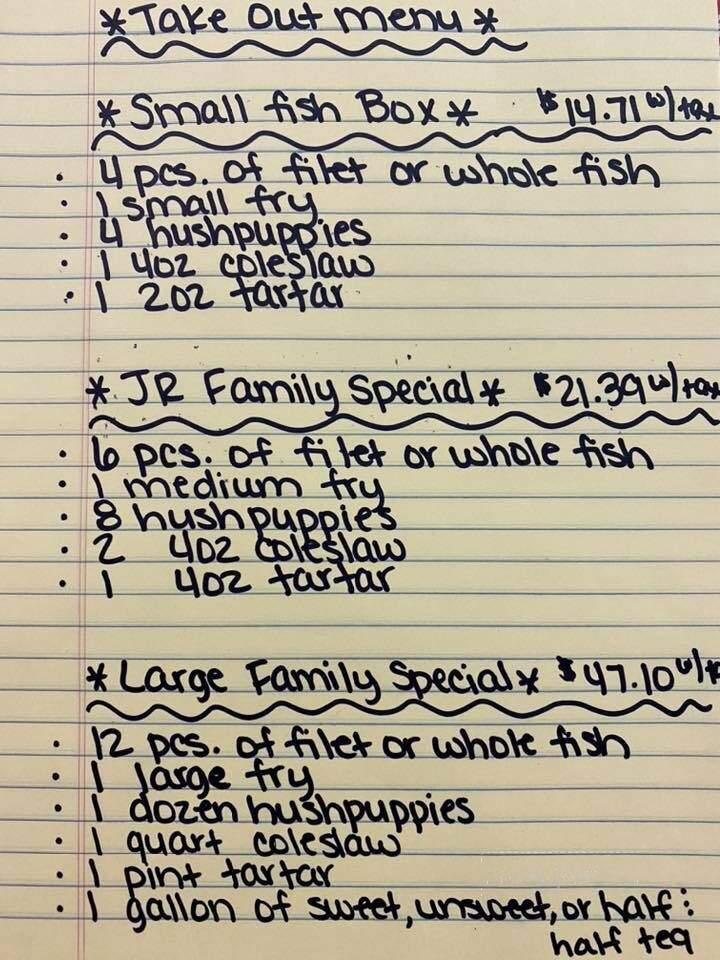 *Take Out menu*
*Small fish Box* $14.71 w/tax
• 4 pcs. of filet or whole fish
• 1 small fry
• 4 hushpuppies
• 1 4oz coleslaw
• 1 2oz tartar
*JR Family Special* $21.39 w/tax
• 6 pcs. of filet or whole fish
• 1 medium fry
• 8 hushpuppies
• 2 4oz coleslaw
• 1 4oz tartar
*Large Family Special* $47.10 w/t
• 12 pcs. of filet or whole fish
• 1 large fry
• 1 dozen hushpuppies
• 1 quart coleslaw
• 1 pint tartar
• 1 gallon of sweet, unsweet, or half:
half tea